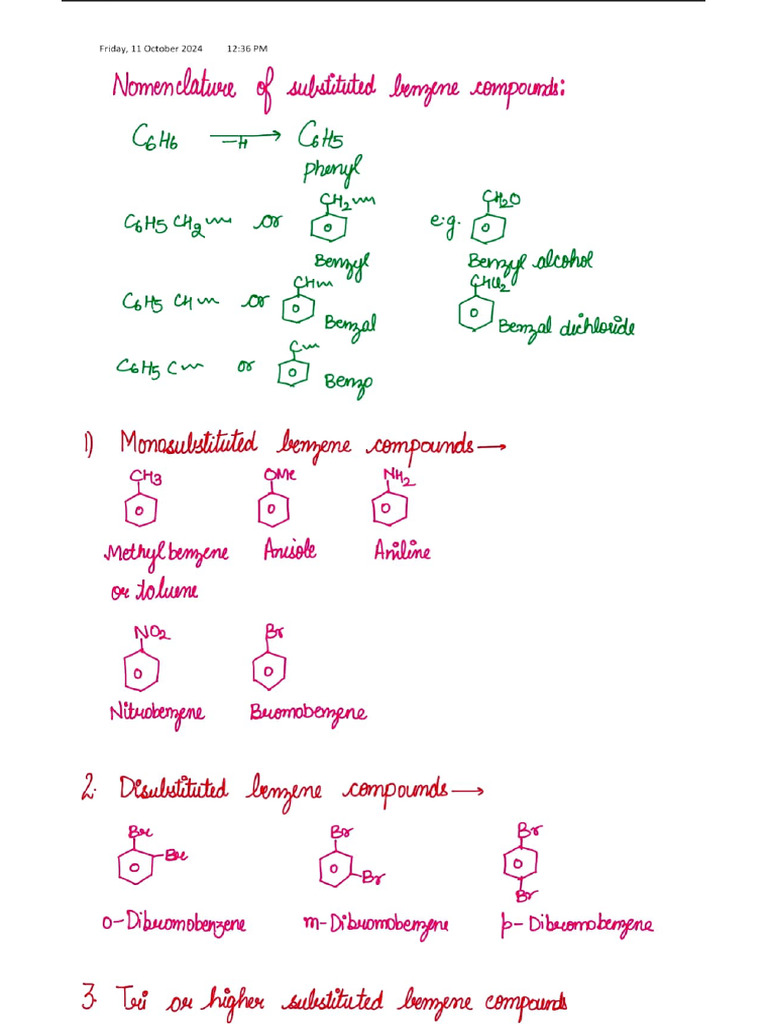 Friday, 11 October 2024 12:36 PM
Nomenclature of substituted benzene compounds:
C6H6 —H→ C6H5
Phenyl
C6H5 CH2 or CH2 e.g. CH2O
Benzyl Benzyl alcohol
C6H5 CH or CH CHCl2
Benzal Benzal dichloride
C6H5 C or C
Benzo
1) Monosubstituted benzene compounds→
CH3 OMe NH2
Methylbenzene Anisole Aniline
or toluene
NO2 Br
Nitrobenzene Bromobenzene
2. Disubstituted benzene compounds→
Br Br Br
Br Br
Br
o-Dibromobenzene m-Dibromobenzene p-Dibromobenzene
3. Tri or higher substituted benzene compounds